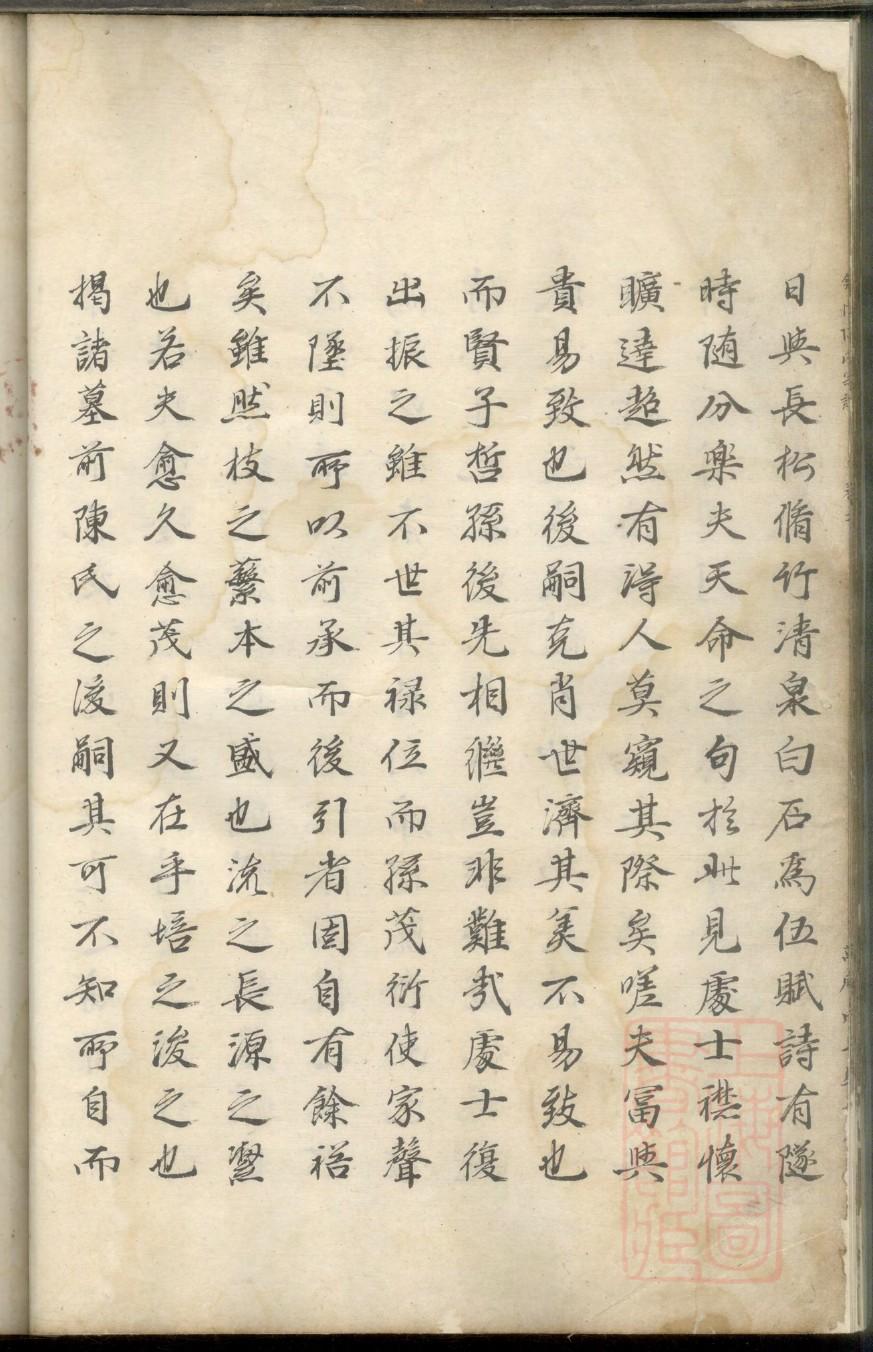 日與長松脩竹清泉白石為伍賦詩有隧
時随分樂夫天命之句扵此見處士襟懷
曠達超然有得人莫窺其際矣嗟夫冨與
貴易致也後嗣克肖世濟其美不易致也
而賢子哲孫後先相繼豈非難哉處士復
出振之雖不世其禄位而孫茂衍使家聲
不墜則所以前承而後引者固自有餘裕
矣雖然枝之蘩本之盛也流之長源之
也若夫愈久愈茂則又在乎培之浚之也
揭諸墓前陳氏之後嗣其可不知所自而